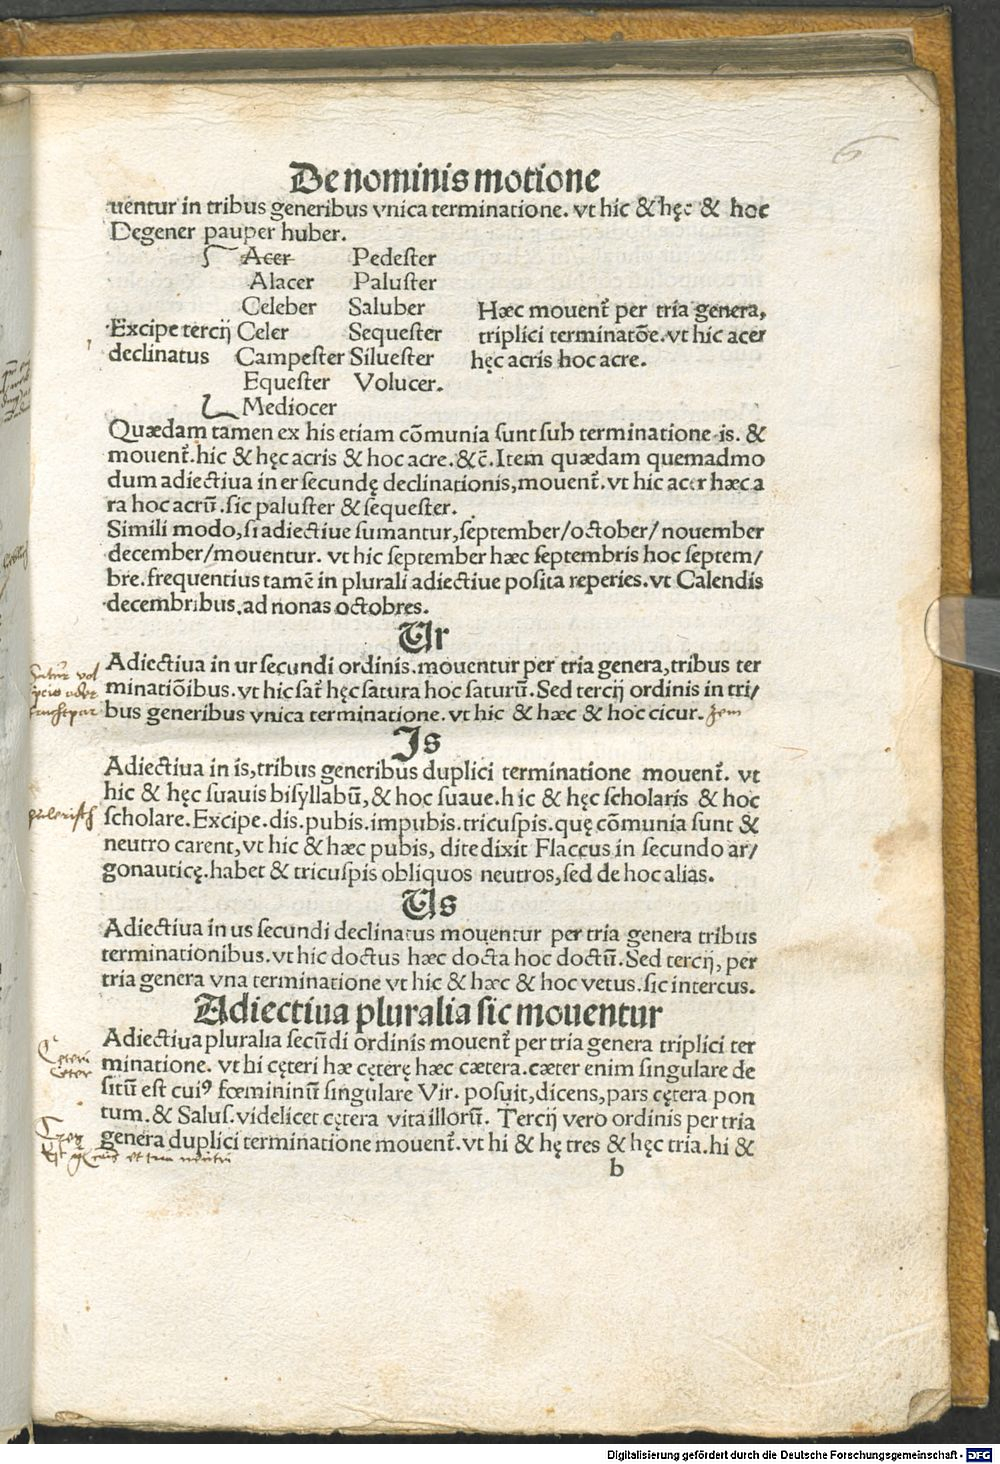 De nominis motione
uentur in tribus generibus vnica terminatione. vt hic & hęc & hoc
Degener pauper huber.
Acer Pedester
Alacer Paluster
Celeber Saluber
Excipe tercij Celer Sequester
declinatus Campester Siluester
Equester Volucer.
Mediocer
Hæc mouent᷑ per tria genera,
triplici terminatõe. vt hic acer
hęc acris hoc acre.
Quædam tamen ex his etiam cõmunia sunt sub terminatione is. &
mouent᷑. hic & hęc acris & hoc acre. &c̃. Item quædam quemadmo
dum adiectiua in er secundę declinationis, mouent᷑. vt hic acer hæc a
ra hoc acrũ. sic paluster & sequester.
Simili modo, si adiectiue sumantur, september/october/nouember
december/mouentur. vt hic september hæc septembris hoc septem/
bre. frequentius tamẽ in plurali adiectiue posita reperies. vt Calendis
decembribus, ad nonas octobres.
Ur
Adiectiua in ur secundi ordinis. mouentur per tria genera, tribus ter
minatiõibus. vt hic sat᷑ hęc satura hoc saturũ. Sed tercij ordinis in tri/
bus generibus vnica terminatione. vt hic & hæc & hoc cicur. Jem
Is
Adiectiua in is, tribus generibus duplici terminatione mouent᷑. vt
hic & hęc suauis bisyllabũ, & hoc suaue. hic & hęc scholaris & hoc
scholare. Excipe. dis. pubis. impubis. tricuspis. quę cõmunia sunt &
neutro carent, vt hic & hæc pubis, dite dixit Flaccus in secundo ar/
gonauticę. habet & tricuspis obliquos neutros, sed de hoc alias.
Us
Adiectiua in us secundi declinatus mouentur per tria genera tribus
terminationibus. vt hic doctus hæc docta hoc doctũ. Sed tercij, per
tria genera vna terminatione vt hic & hæc & hoc vetus. sic intercus.
Adiectiua pluralia sic mouentur
Adiectiua pluralia secũdi ordinis mouent᷑ per tria genera triplici ter
minatione. vt hi cęteri hæ cęterę hæc cætera. cæter enim singulare de
sitũ est cuiꝰ fœmininũ singulare Vir. posuit, dicens, pars cętera pon
tum. & Salus. videlicet cętera vita illorũ. Tercij vero ordinis per tria
genera duplici terminatione mouent᷑. vt hi & hę tres & hęc tria. hi &
b
Cęteri
Ceter
Digitalisierung gefördert durch die Deutsche Forschungsgemeinschaft - DFG